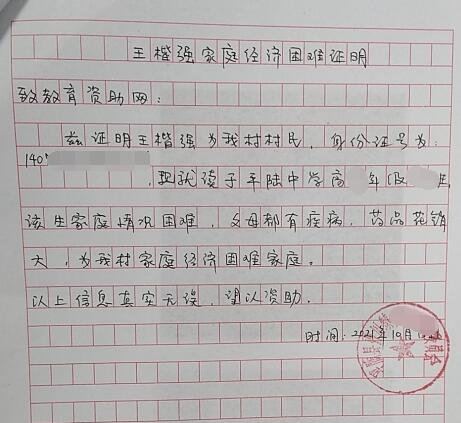 王楷强家庭经济困难证明
致教育资助网：
兹证明王楷强为我村村民，身份证号为：
140
，现就读于平陆中学高 年级 生，
该生家庭情况困难，父母都有疾病，药品花销
大，为我村家庭经济困难家庭。
以上信息真实无误，望以资助。
时间：2021年10月